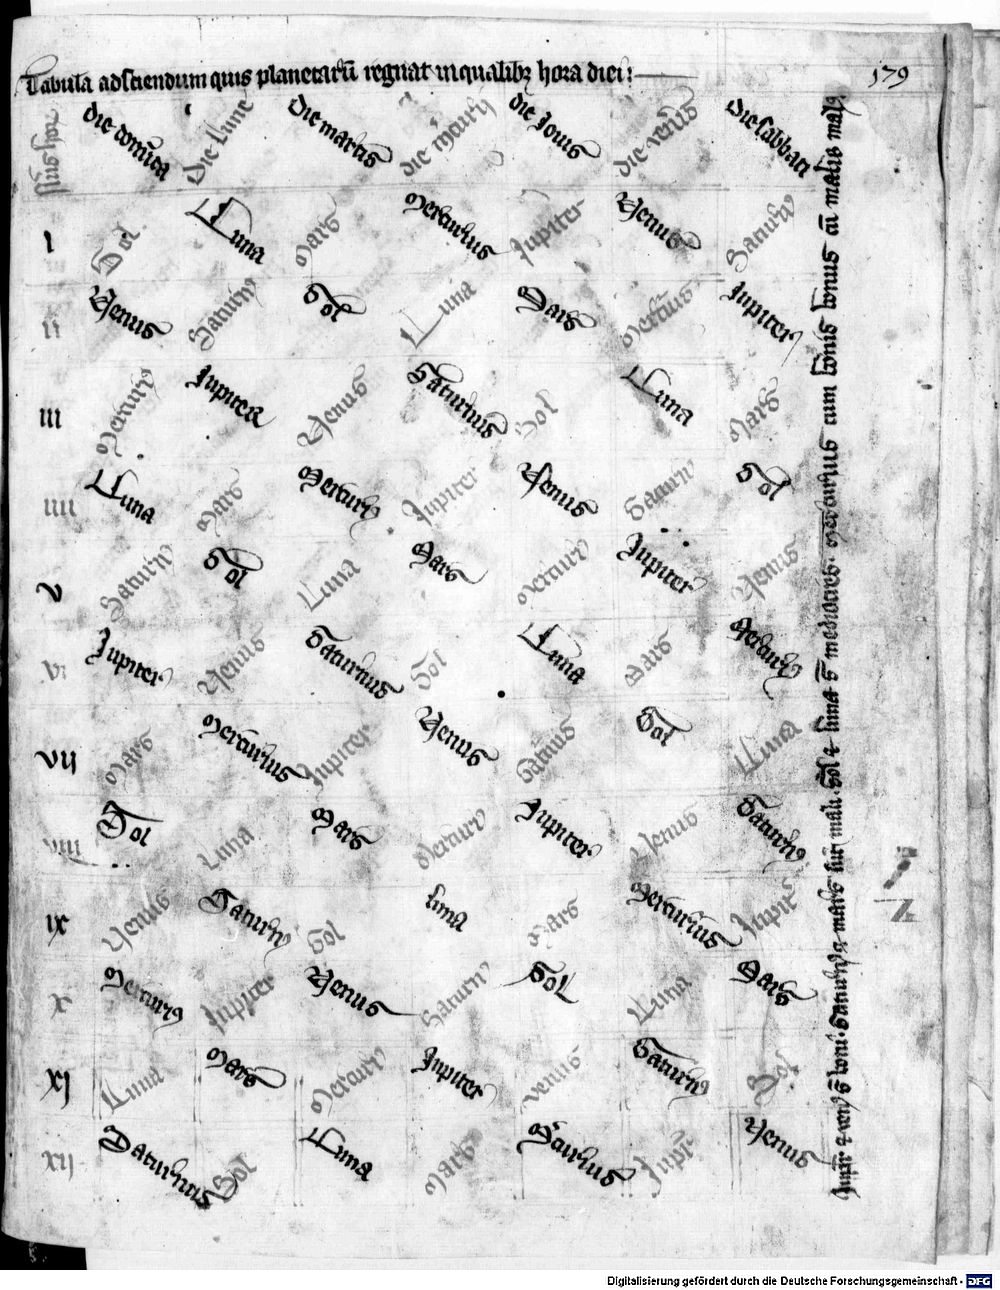 Tabula ad sciendum quis planetarū regnat in qualibꝫ hora diei : 179
die domīca die Lune die martis die mꝰcurij die Jouis die venꝰis die sabbati
I Sol Luna Mars Mercurius Jupiter Venus Saturnꝰ
II Venus Saturnꝰ Sol Luna Mars Mercꝰius Jupiter
III Mercuriꝰ Jupiter Venus Saturnus Sol Luna Mars
IIII Luna Mars Mercuriꝰ Jupiter Venus Saturnꝰ Sol
V Saturnꝰ Sol Luna Mars Mercuriꝰ Jupiter Venus
VI Jupiter Venus Saturnus Sol Luna Mars Mercuriꝰ
VII Mars Mercurius Jupiter Venus Satnus Sol Luna
VIII Sol Luna Mars Mercuriꝰ Jupiter Venus Saturnꝰ
IX Venus Saturnꝰ Sol luna Mars Mercurius Jupitꝰ
X Mercuriꝰ Jupiter Venus Saturnꝰ Sol Luna Mars
XI Luna Mars Mercuriꝰ Jupiter venus Saturnꝰ Sol
XII Saturnus Sol Luna Mars Jupitꝰ Venus
Jupitꝰ et venꝰ sūt boni · Saturnꝰ et mars sūt mali · Sol et luna sūt mediocres · Mercurius cum bonis bonus cū malis malꝰ
Digitalisierung gefördert durch die Deutsche Forschungsgemeinschaft - DFG